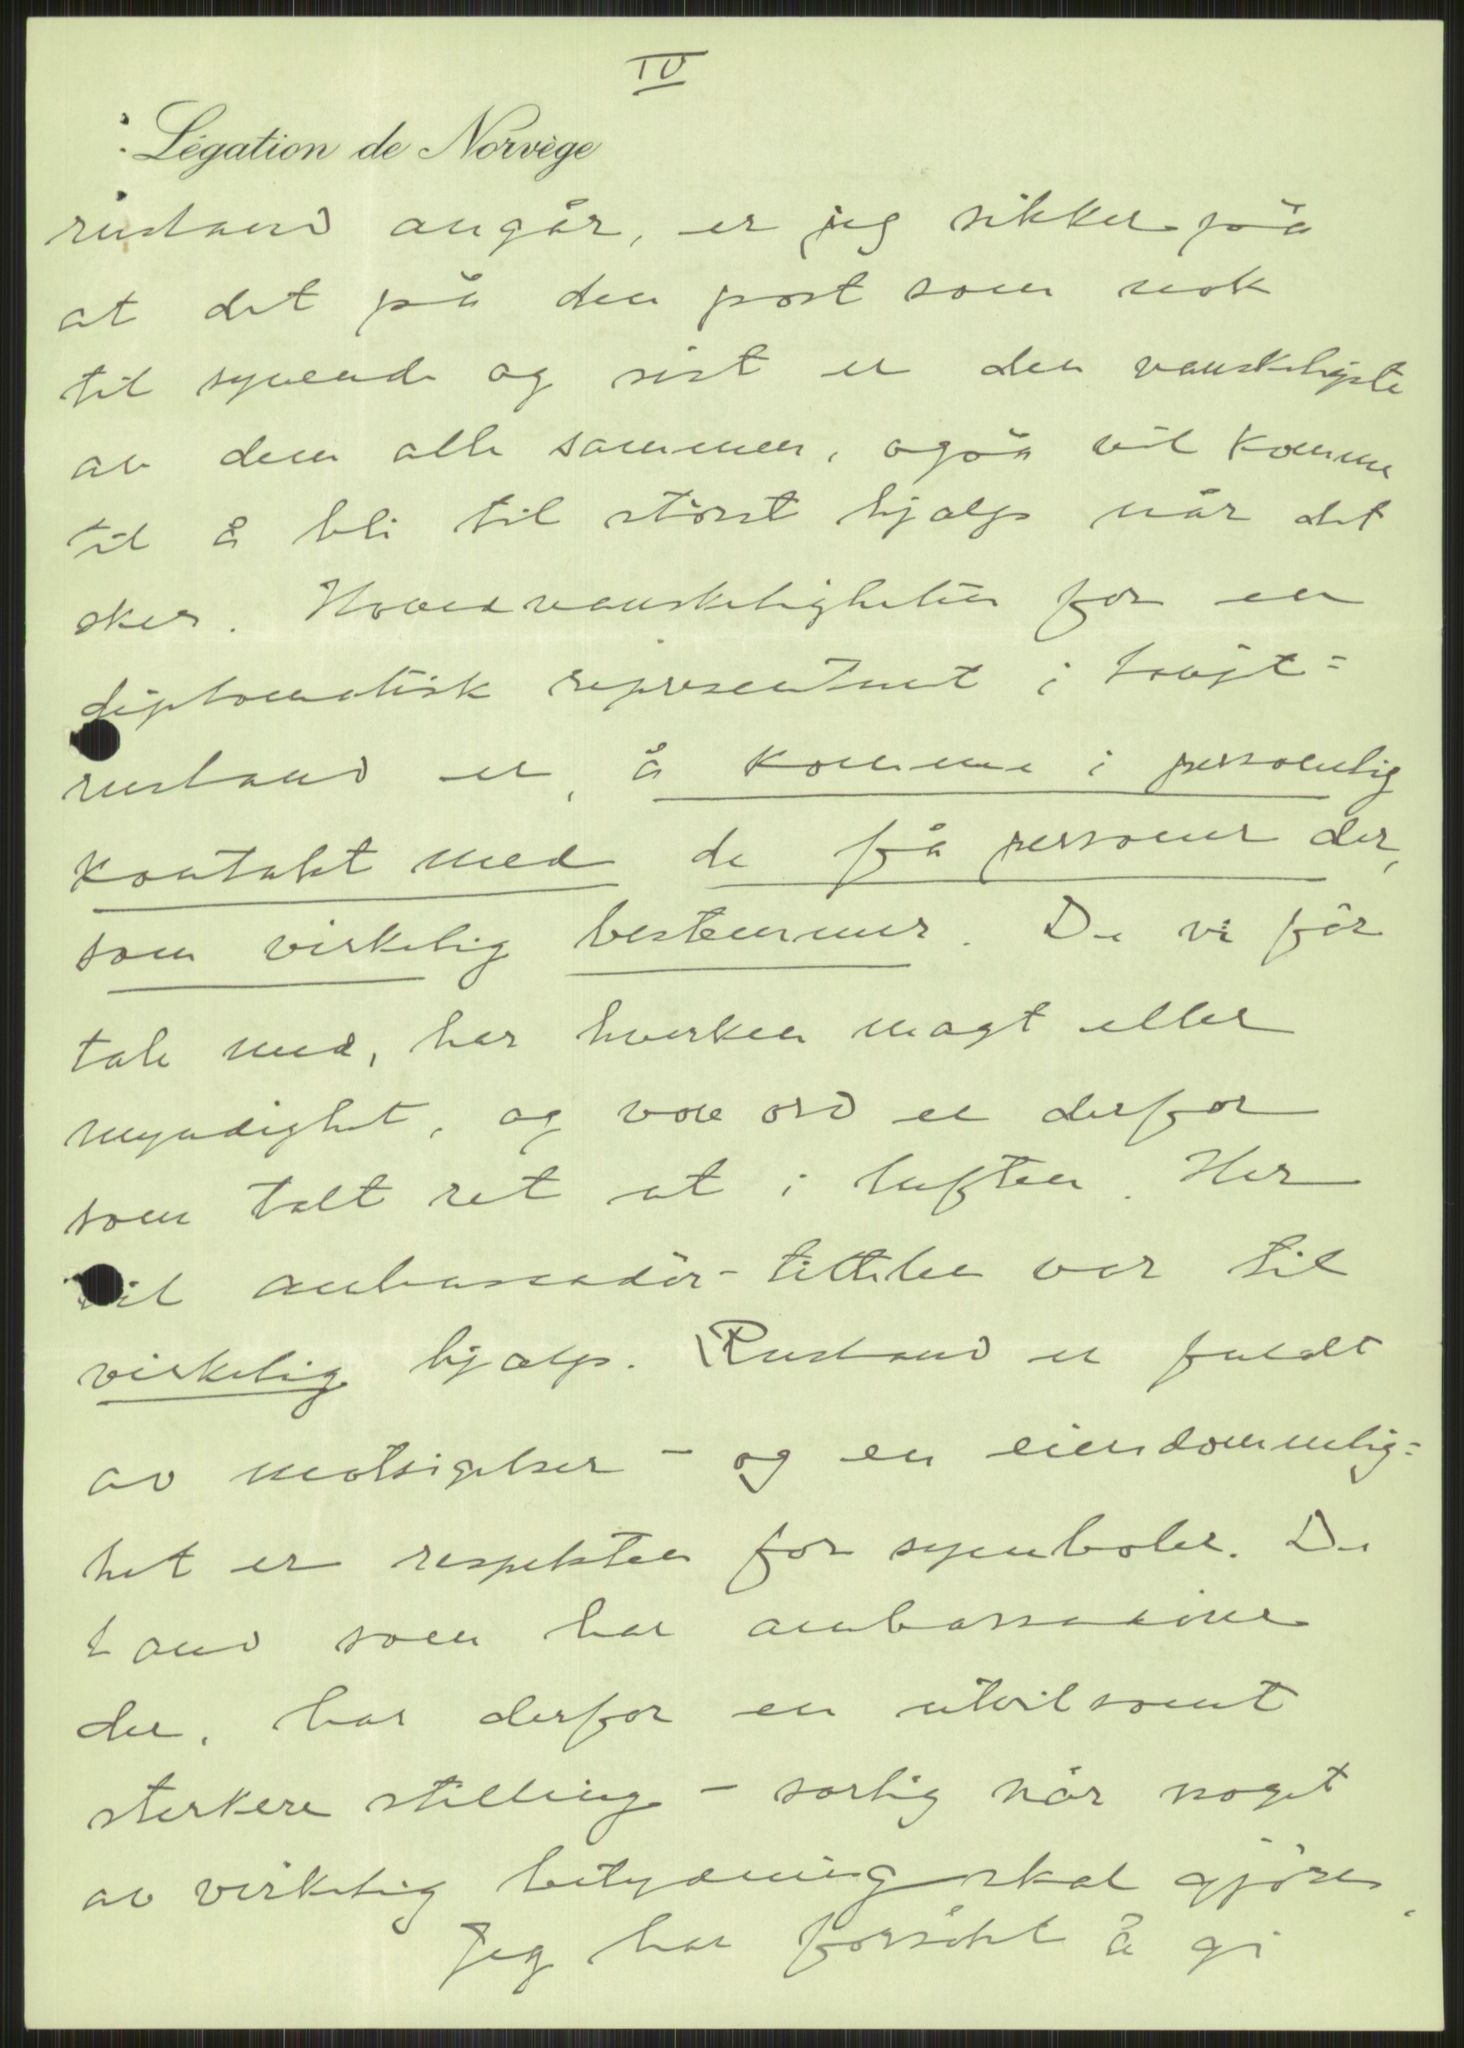 IV
Légation de Norvège
rusland angår, er jeg sikker på
at det på den post som nok
til syvende og sist er den vanskeligste
av dem alle sammen, også vil komme
til å bli til störst hjælp når det
sker. Hovedvanskeligheten for en
diplomatisk representant i Sovjet=
rusland er, å komme i personlig
kontakt med de få personer der,
som virkelig bestemmer. De vi får
tale med, har hverken magt eller
myndighet, og vore ord er derfor
som talt ret ut i luften. Her
vil ambassadör-tittelen var til
virkelig hjælp. Rusland er fuldt
av motsigelser - og en eiendommelig=
het er respekten for symboler. De
land som har ambassadörer
der, har derfor en utvilsomt
sterkere stilling - særlig når noget
av virkelig betydning skal gjöres.
Jeg har forsökt å gi